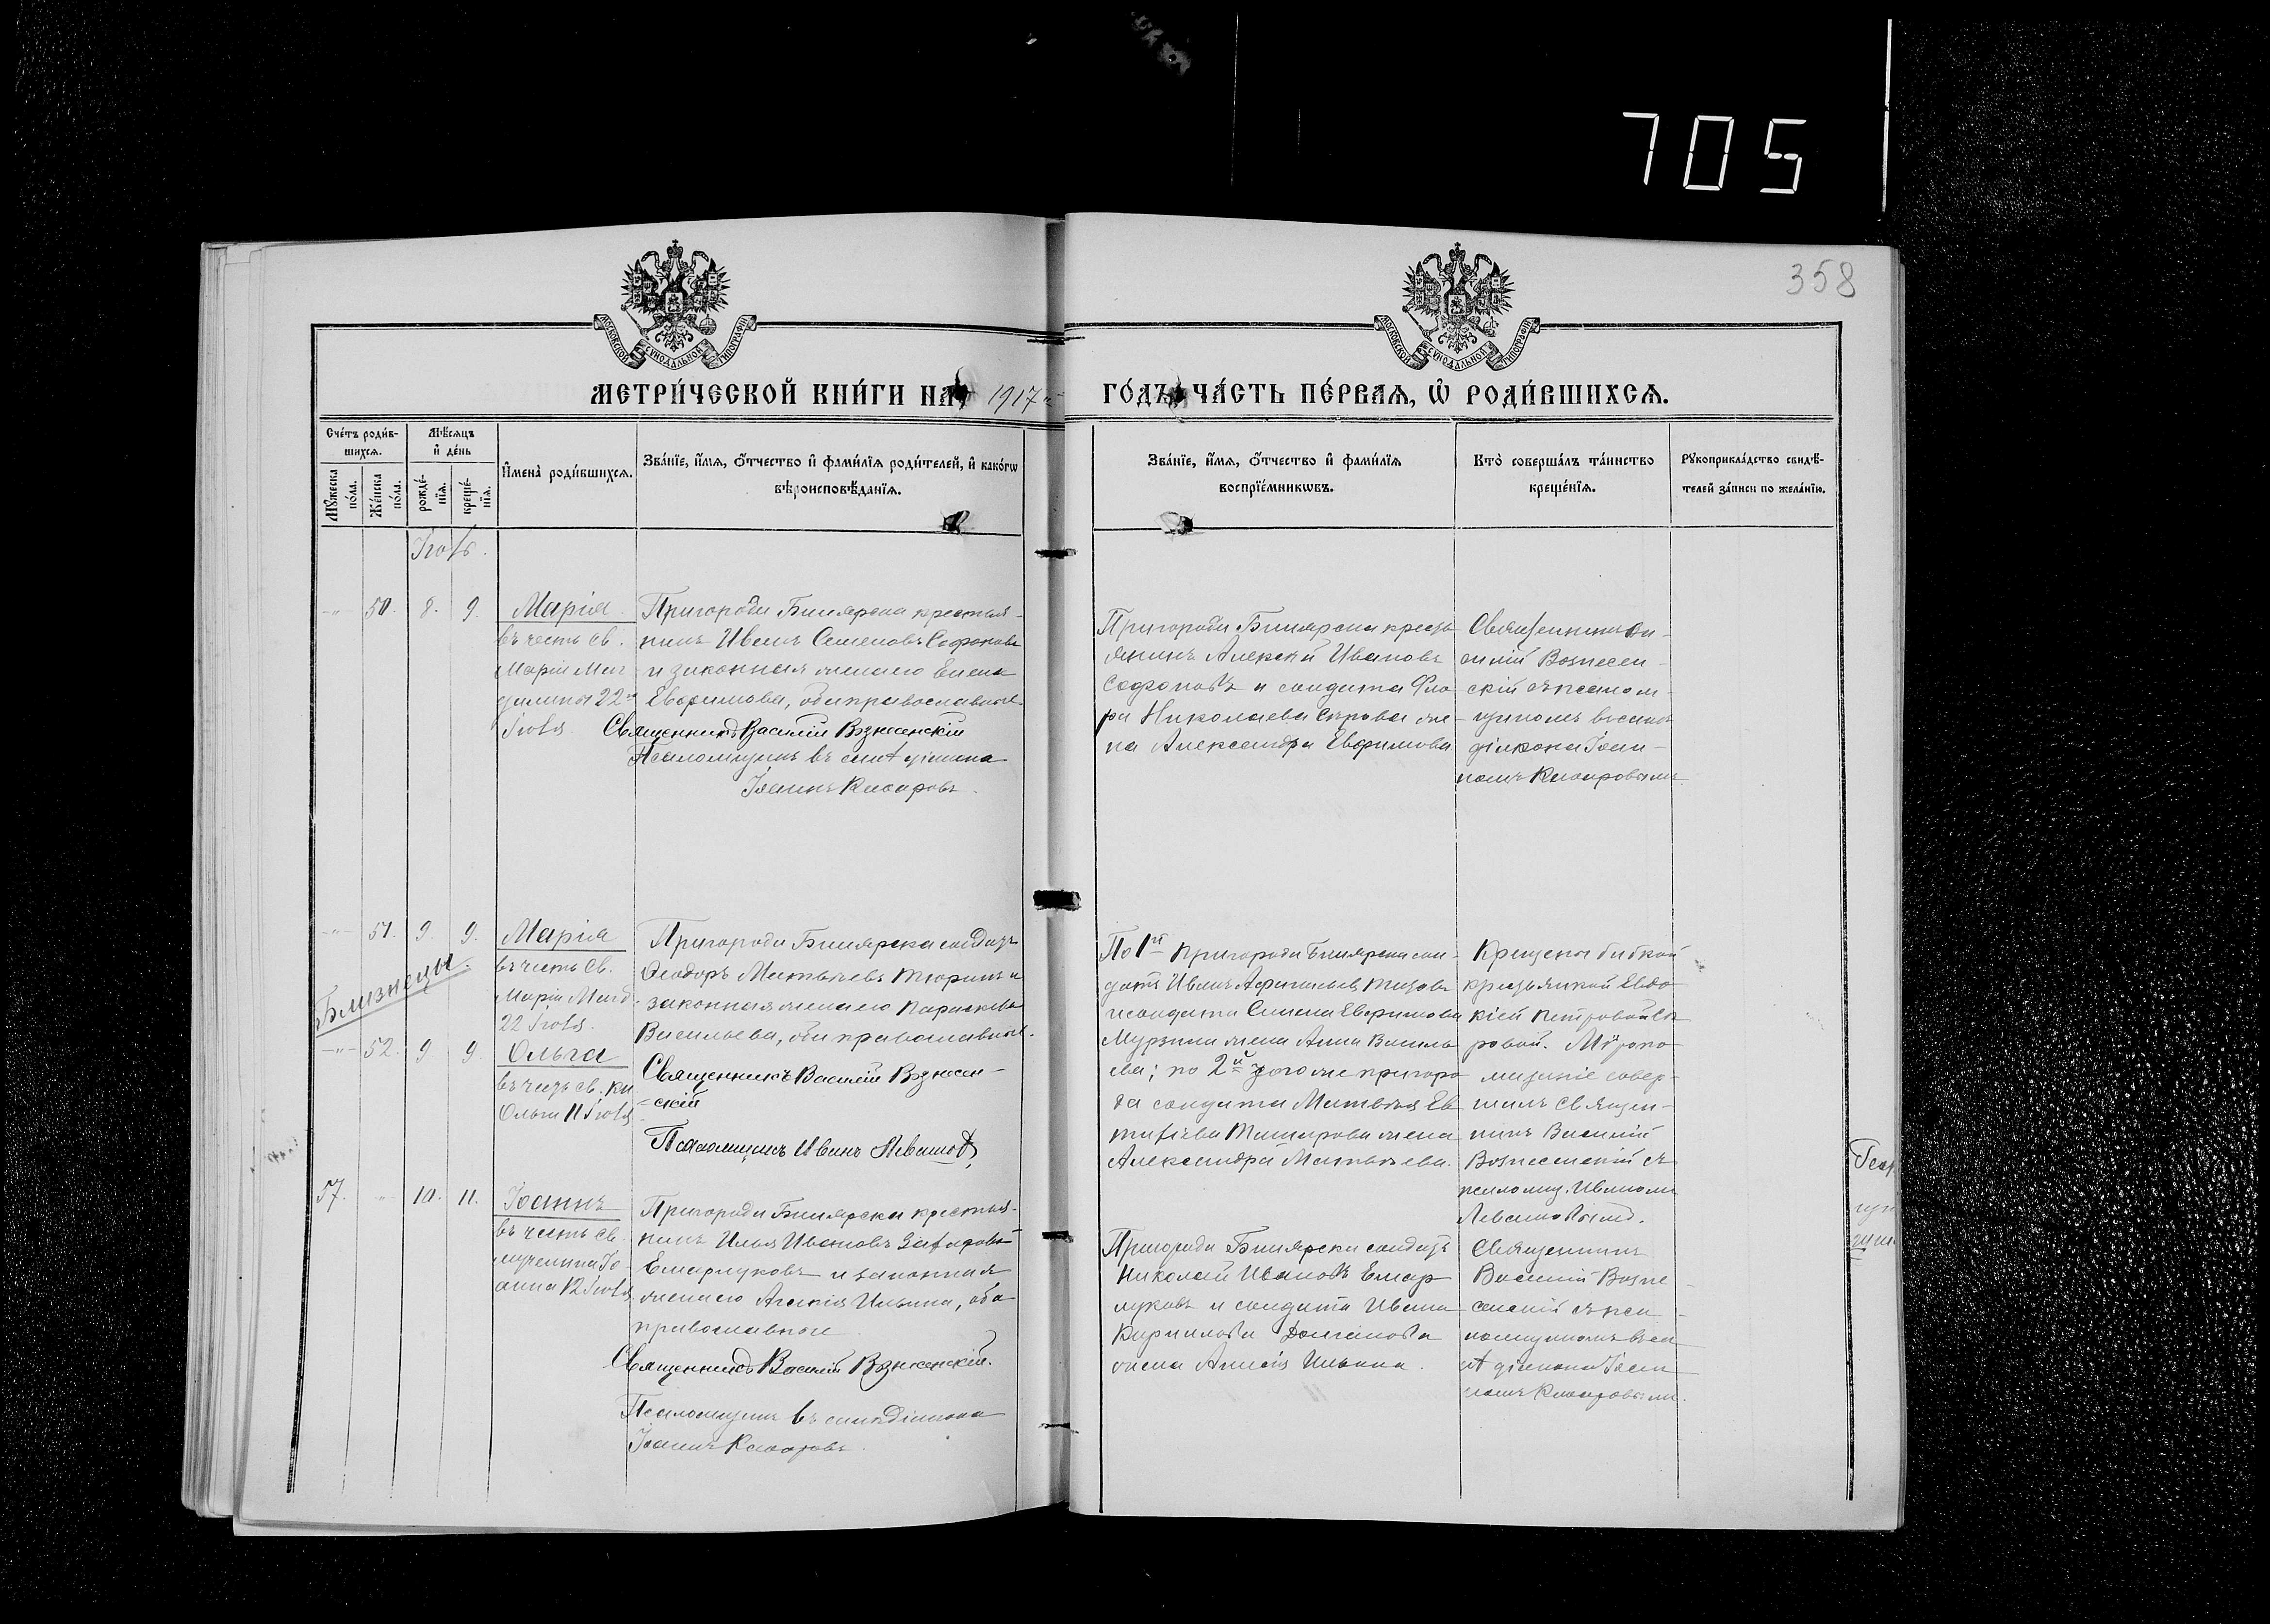 705
358
МОСКОВСКОЙ СУНОДАЛЬНОЙ ТИПОГРАФІИ
МОСКОВСКОЙ СУНОДАЛЬНОЙ ТИПОГРАФІИ
МЕТРИ́ЧЕСКОЙ КНИ́ГИ НА 1917 ГО́ДЪ ЧА́СТЬ ПЕ́РВАѦ, Ѡ҆ РОДИ́ВШИХСѦ.
Сче́тъ роди́в-
шихсѧ.
Мꙋжеска по́ла.
Же́нска по́ла.
Мѣ́сѧцъ
и҆ де́нь
рожде́-нїѧ.
креще́-нїѧ.
И҆мена̀ роди́вшихсѧ.
Зва́нїе, и҆́мѧ, ѻ҆́тчество и҆ фами́лїѧ роди́телей, и҆ како́гѡ
вѣроисповѣ́данїѧ.
Зва́нїе, и҆́мѧ, ѻ҆́тчество и҆ фами́лїѧ
воспрїе́мникѡвъ.
Кто̀ соверша́лъ та́инство
креще́нїѧ.
Рꙋкоприкла́дство свидѣ́-
телей за́писи по жела́нїю.
Іюль.
-"- 50. 8. 9.
Марія
въ честь св.
Маріи Маг
далины 22го
Іюля
Пригорода Билярска крестья-
нинъ Иванъ Семеновъ Софоновъ
и законная жена его Елена
Евфимова, оба православные.
Священникъ Василій Вознесенскій
Псаломщикъ въ санѣ діакона
Іоаннъ
Пригорода Билярска кресть
янинъ Алексѣй Ивановъ
Софоновъ и солдата Фло
ра Николаева Сѣрова же-
на Александра Евфимова
Священникъ Ва-
силій Вознесен-
скій съ псалом-
щикомъ въ санѣ
діакона Іоан-
номъ
-"- 51. 9. 9.
Близнецы.
Марія
въ честь Св.
Маріи Магд.
22 Іюля.
-"- 52. 9 9.
Ольга
въ честь св. кн
Ольги 11 Іюля
Пригорода Билярска солдатъ
Ѳеодоръ Матвѣевъ Тюринъ и
законная жена его Параскева
Васильева, оба православные.
Священникъ Василій Вознесен-
скій
Псаломщикъ Иванъ Левашов
По 1й Пригорода Билярска сол-
датъ Иванъ
и солдата Семена Евфимова
Мурзина жена Анна Василь
ева; по 2й того же пригоро
да солдата Матвѣя Ев
жена
Александра Матвѣева.
Крещены бабкой
крестьянкой Евдо
кіей Петровой Сѣ
ровой. Мѵропо-
мазаніе совер-
шилъ Священ-
никъ Василій
Вознесенскій съ
псаломщ. Иваномъ
Левашовымъ.
57. -"- 10. 11.
Іоаннъ
въ честь св.
мученика Іо-
анна 12 Іюля
Пригорода Билярска крестья-
нинъ Илья Ивановъ
Емарлуковъ и законная
жена его Агапія Ильина, оба
православные
Священникъ Василій Вознесенскій.
Псаломщикъ въ санѣ діакона
Іоаннъ
Пригорода Билярска солдатъ
Николай Ивановъ Емар
луковъ и солдата Ивана
Кириллова Долганова
жена Ильина.
Священникъ
Василій Возне-
сенскій съ пса-
ломщикомъ въ са
нѣ діакона Іоан
номъ